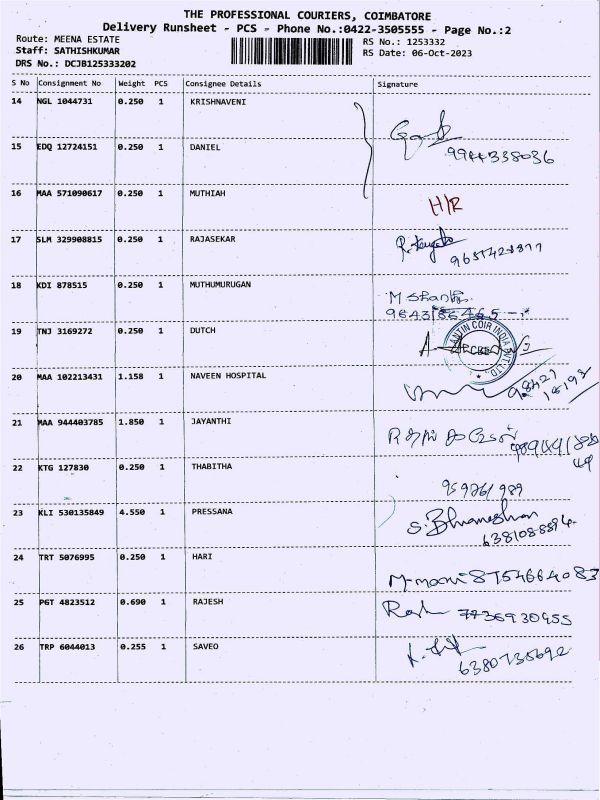 THE PROFESSIONAL COURIERS, COIMBATORE
Delivery Runsheet - PCS - Phone No.:0422-3505555 - Page No.:2
Route: MEENA ESTATE
RS No.: 1253332
Staff: SATHISHKUMAR
RS Date: 06-Oct-2023
DRS No.: DCJB125333202
S No Consignment No Weight PCS Consignee Details Signature
14 NGL 1044731 0.250 1 KRISHNAVENI
15 EDQ 12724151 0.250 1 DANIEL 9944338036
16 MAA 571090617 0.250 1 MUTHIAH H/R
17 SLM 329908815 0.250 1 RAJASEKAR
18 KDI 878515 0.250 1 MUTHUMURUGAN M
19 TNJ 3169272 0.250 1 DUTCH
COIR INDIA PVT LTD.
20 MAA 102213431 1.158 1 NAVEEN HOSPITAL
21 MAA 944403785 1.850 1 JAYANTHI
22 KTG 127830 0.250 1 THABITHA
23 KLI 530135849 4.550 1 PRESSANA 6381088894
24 TRT 5076995 0.250 1 HARI 8754664083
25 PGT 4823512 0.690 1 RAJESH 7736930955
26 TRP 6044013 0.255 1 SAVEO 6380735692